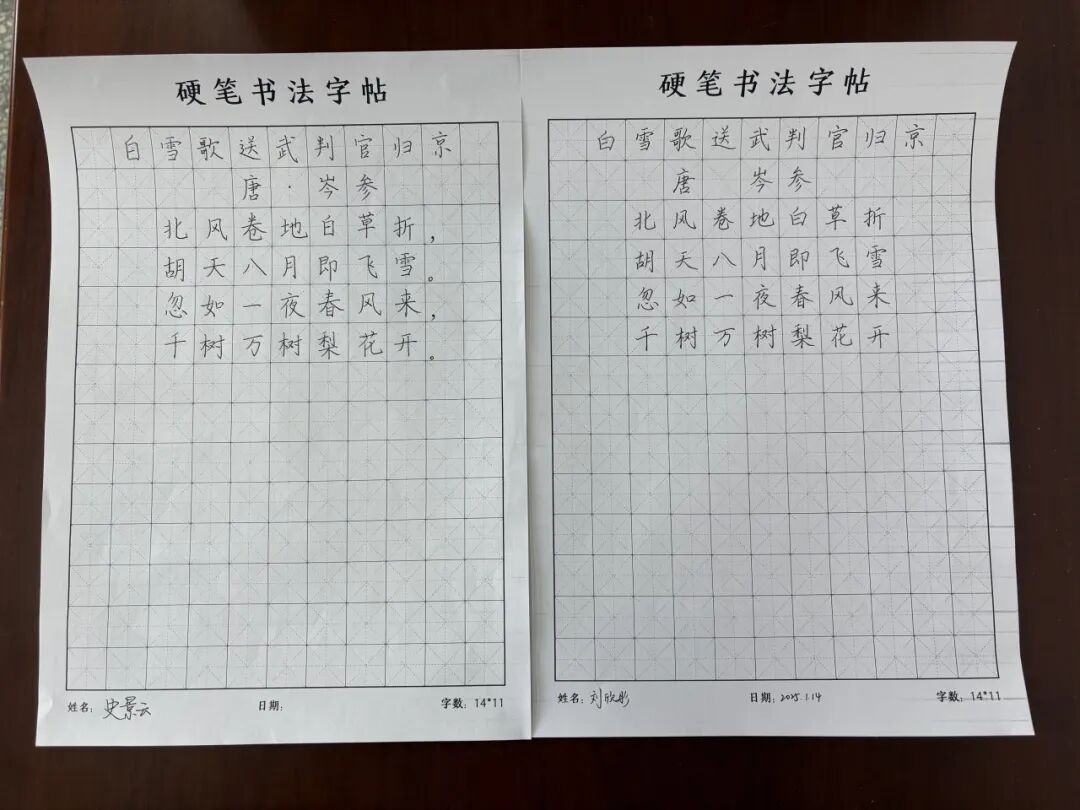 硬笔书法字帖
白雪歌送武判官归京
唐·岑参
北风卷地白草折，
胡天八月即飞雪。
忽如一夜春风来，
千树万树梨花开。
姓名：史景云 日期： 字数：14*11
硬笔书法字帖
白雪歌送武判官归京
唐 岑参
北风卷地白草折
胡天八月即飞雪
忽如一夜春风来
千树万树梨花开
姓名：刘欣彤 日期：2025.1.14 字数：14*11